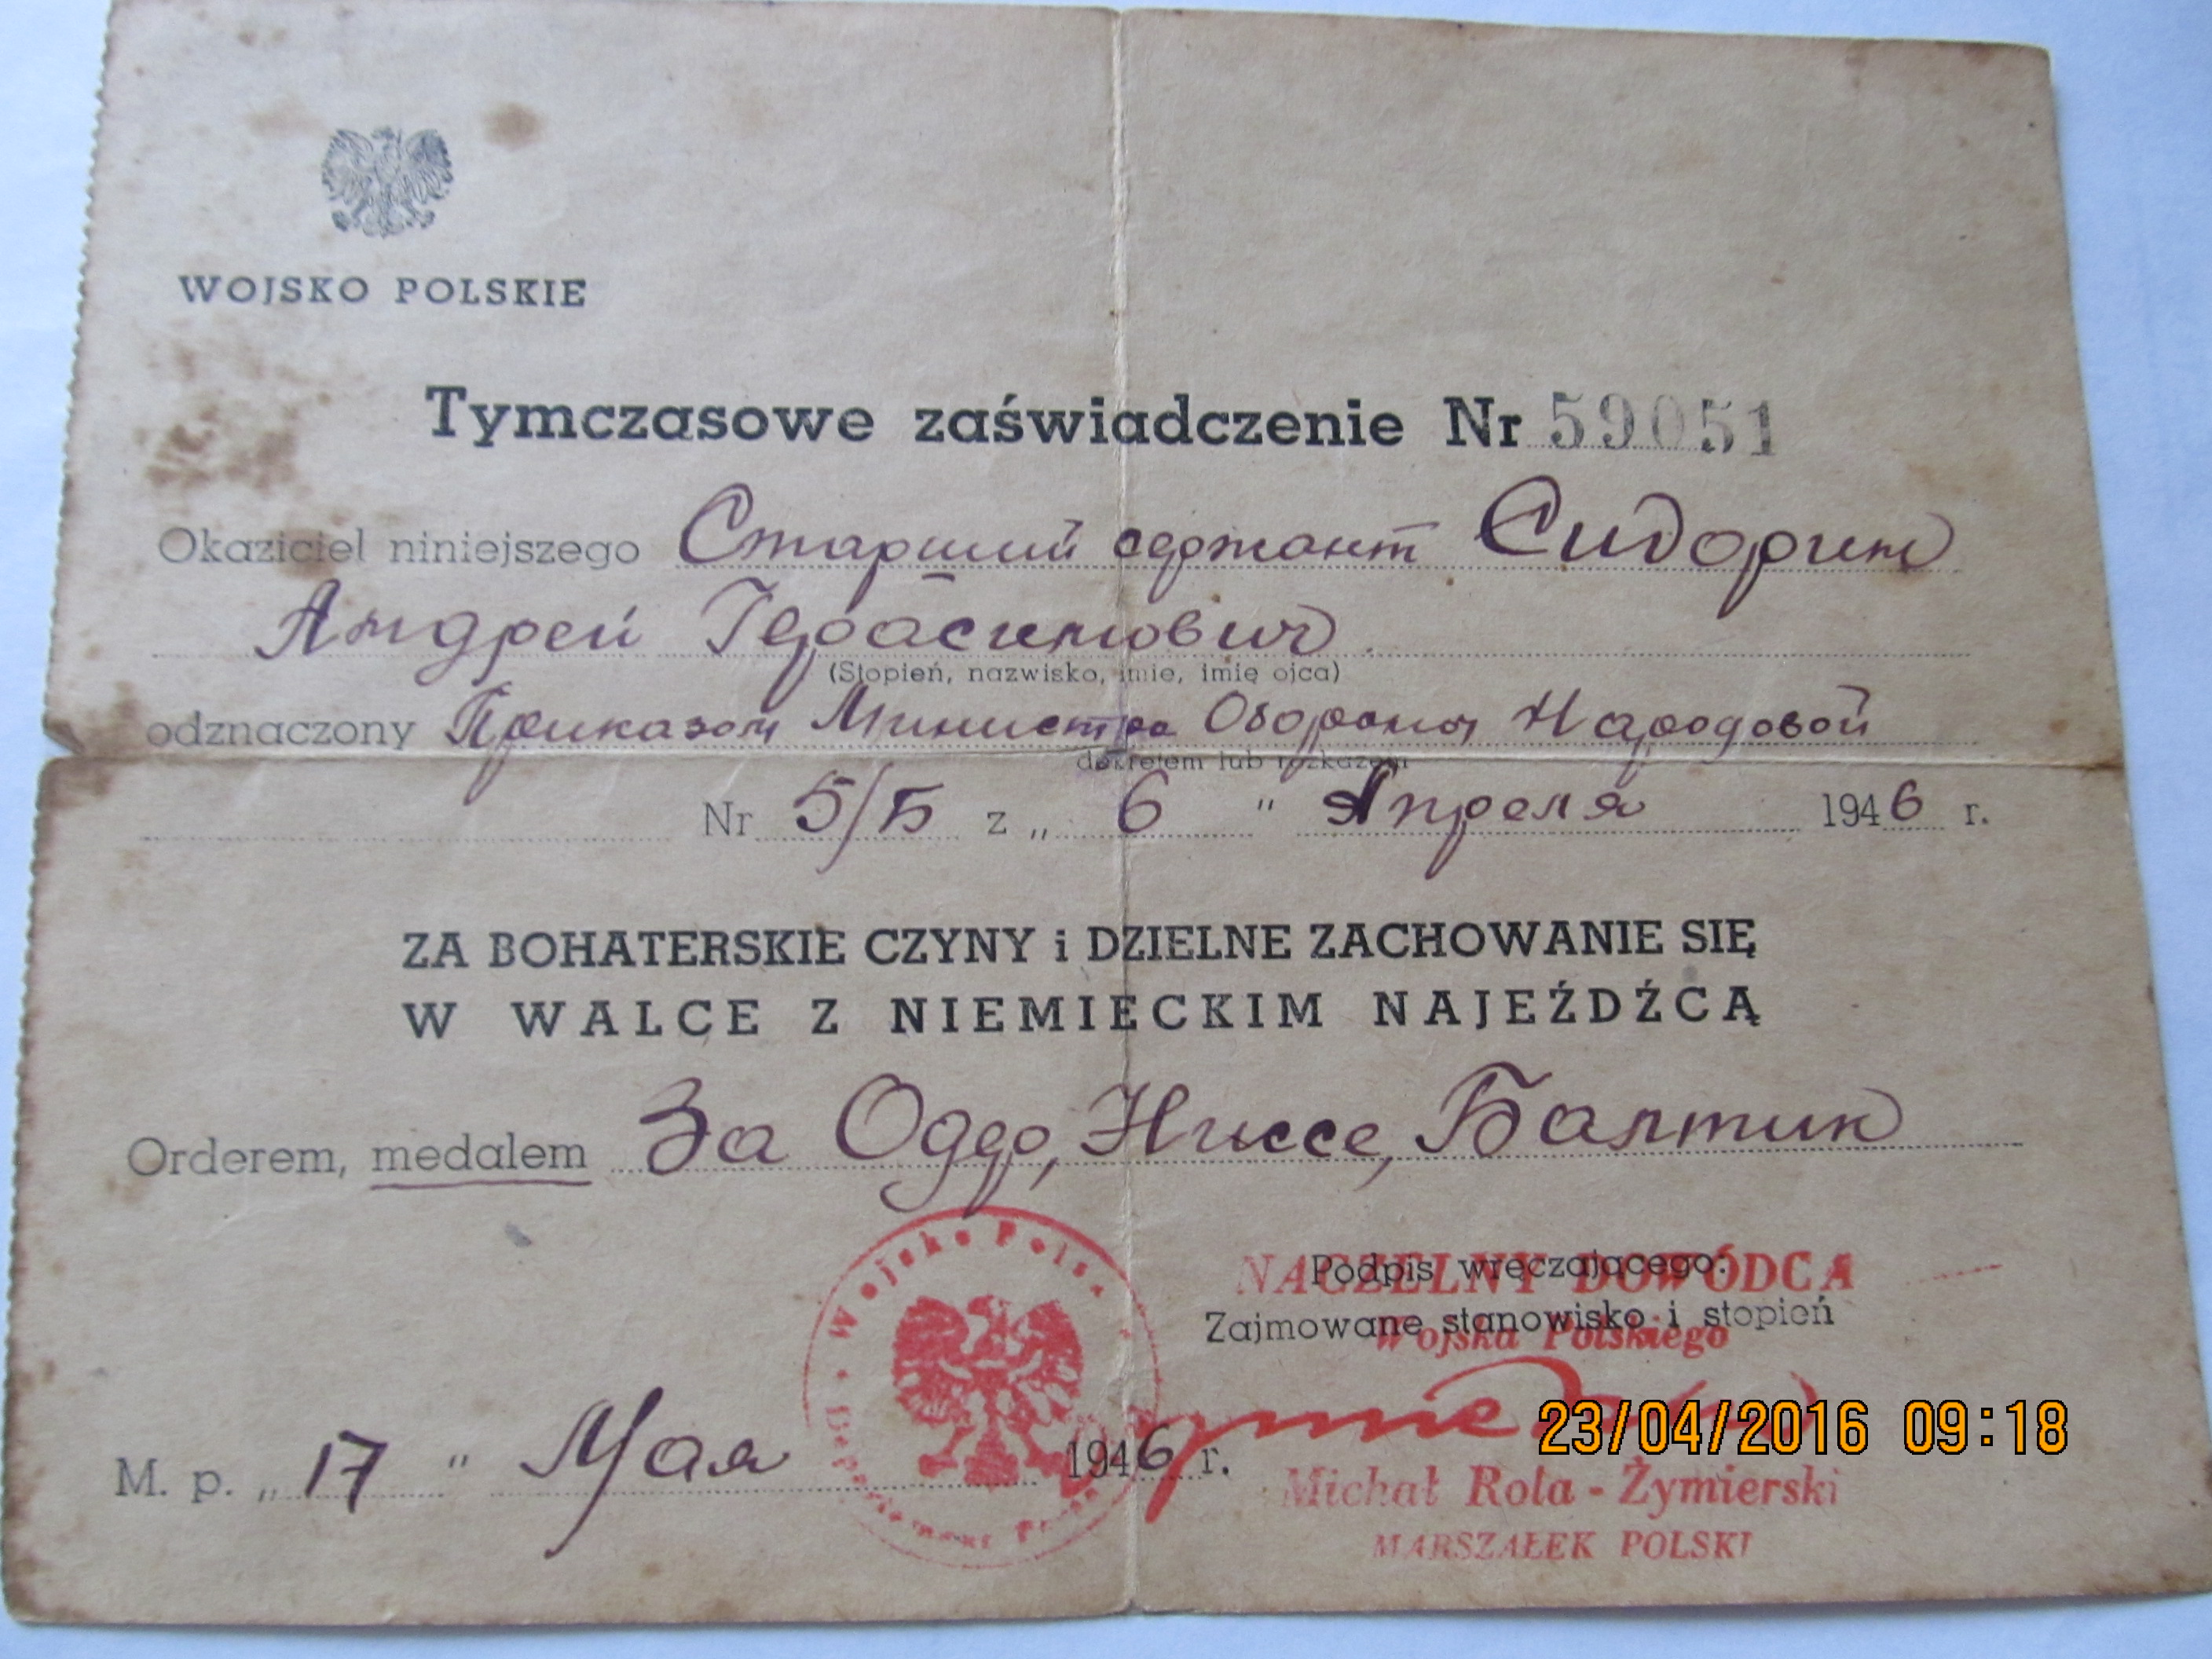 WOJSKO POLSKIE
Tymczasowe zaświadczenie Nr 59051
Okaziciel niniejszego Старший сержант Сидорин
Андрей Герасимович
(Stopień, nazwisko, imie, imię ojca)
odznaczony Приказом Министра Обороны Народовой
dekretem lub rozkazem
Nr 5/Б z „ 6 " Апреля 1946 r.
ZA BOHATERSKIE CZYNY i DZIELNE ZACHOWANIE SIĘ
W WALCE Z NIEMIECKIM NAJEŹDŹCĄ
Orderem, medalem За Одер, Ниссе, Балтик
Wojsko Polskie
Podpis wręczającego:
NACZELNY DOWÓDCA
Zajmowane stanowisko i stopień
Wojska Polskiego
23/04/2016 09:18
M. p. „ 17 " Мая 1946 r.
Michał Rola-Żymierski
MARSZAŁEK POLSKI